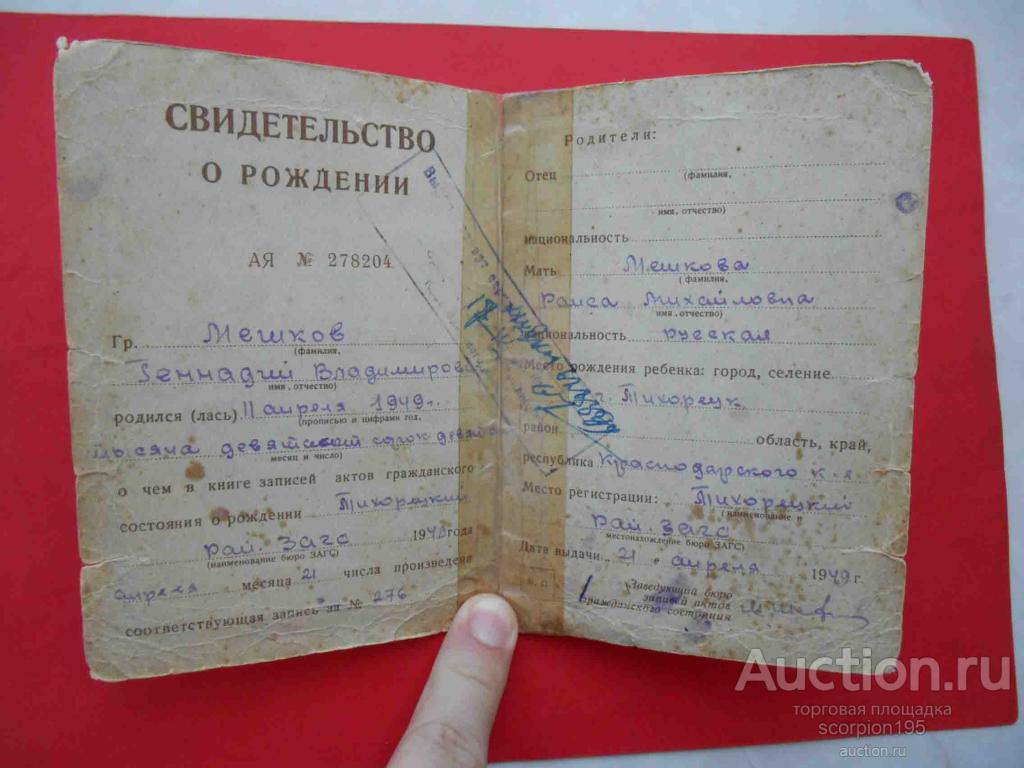 СВИДЕТЕЛЬСТВО
О РОЖДЕНИИ
АЯ № 278204
Гр. Мешков
(фамилия,
Геннадий Владимирович
имя, отчество)
родился (лась) 11 апреля 1949г.
(прописью и цифрами год,
тысяча девятьсот сорок
месяц и число)
о чем в книге записей актов гражданского
состояния о рождении Тихорецкий
рай. Загс 1949 года
(наименование бюро ЗАГС)
апреля месяца 21 числа произведена
соответствующая запись за № 276
Родители:
Отец
(фамилия,
имя, отчество)
национальность
Мать Мешкова
(фамилия,
Раиса Михайловна
имя, отчество)
национальность русская
Место рождения ребенка: город, селение
г. Тихорецк
район область, край,
республика Краснодарского к-я
Место регистрации: Тихорецкий
(наименование и
рай. Загс
местонахождение бюро ЗАГС)
Дата выдачи 21 апреля 1949 г.
Заведующий бюро
записи актов
гражданского состояния
Auction.ru
торговая площадка
scorpion195
auction.ru